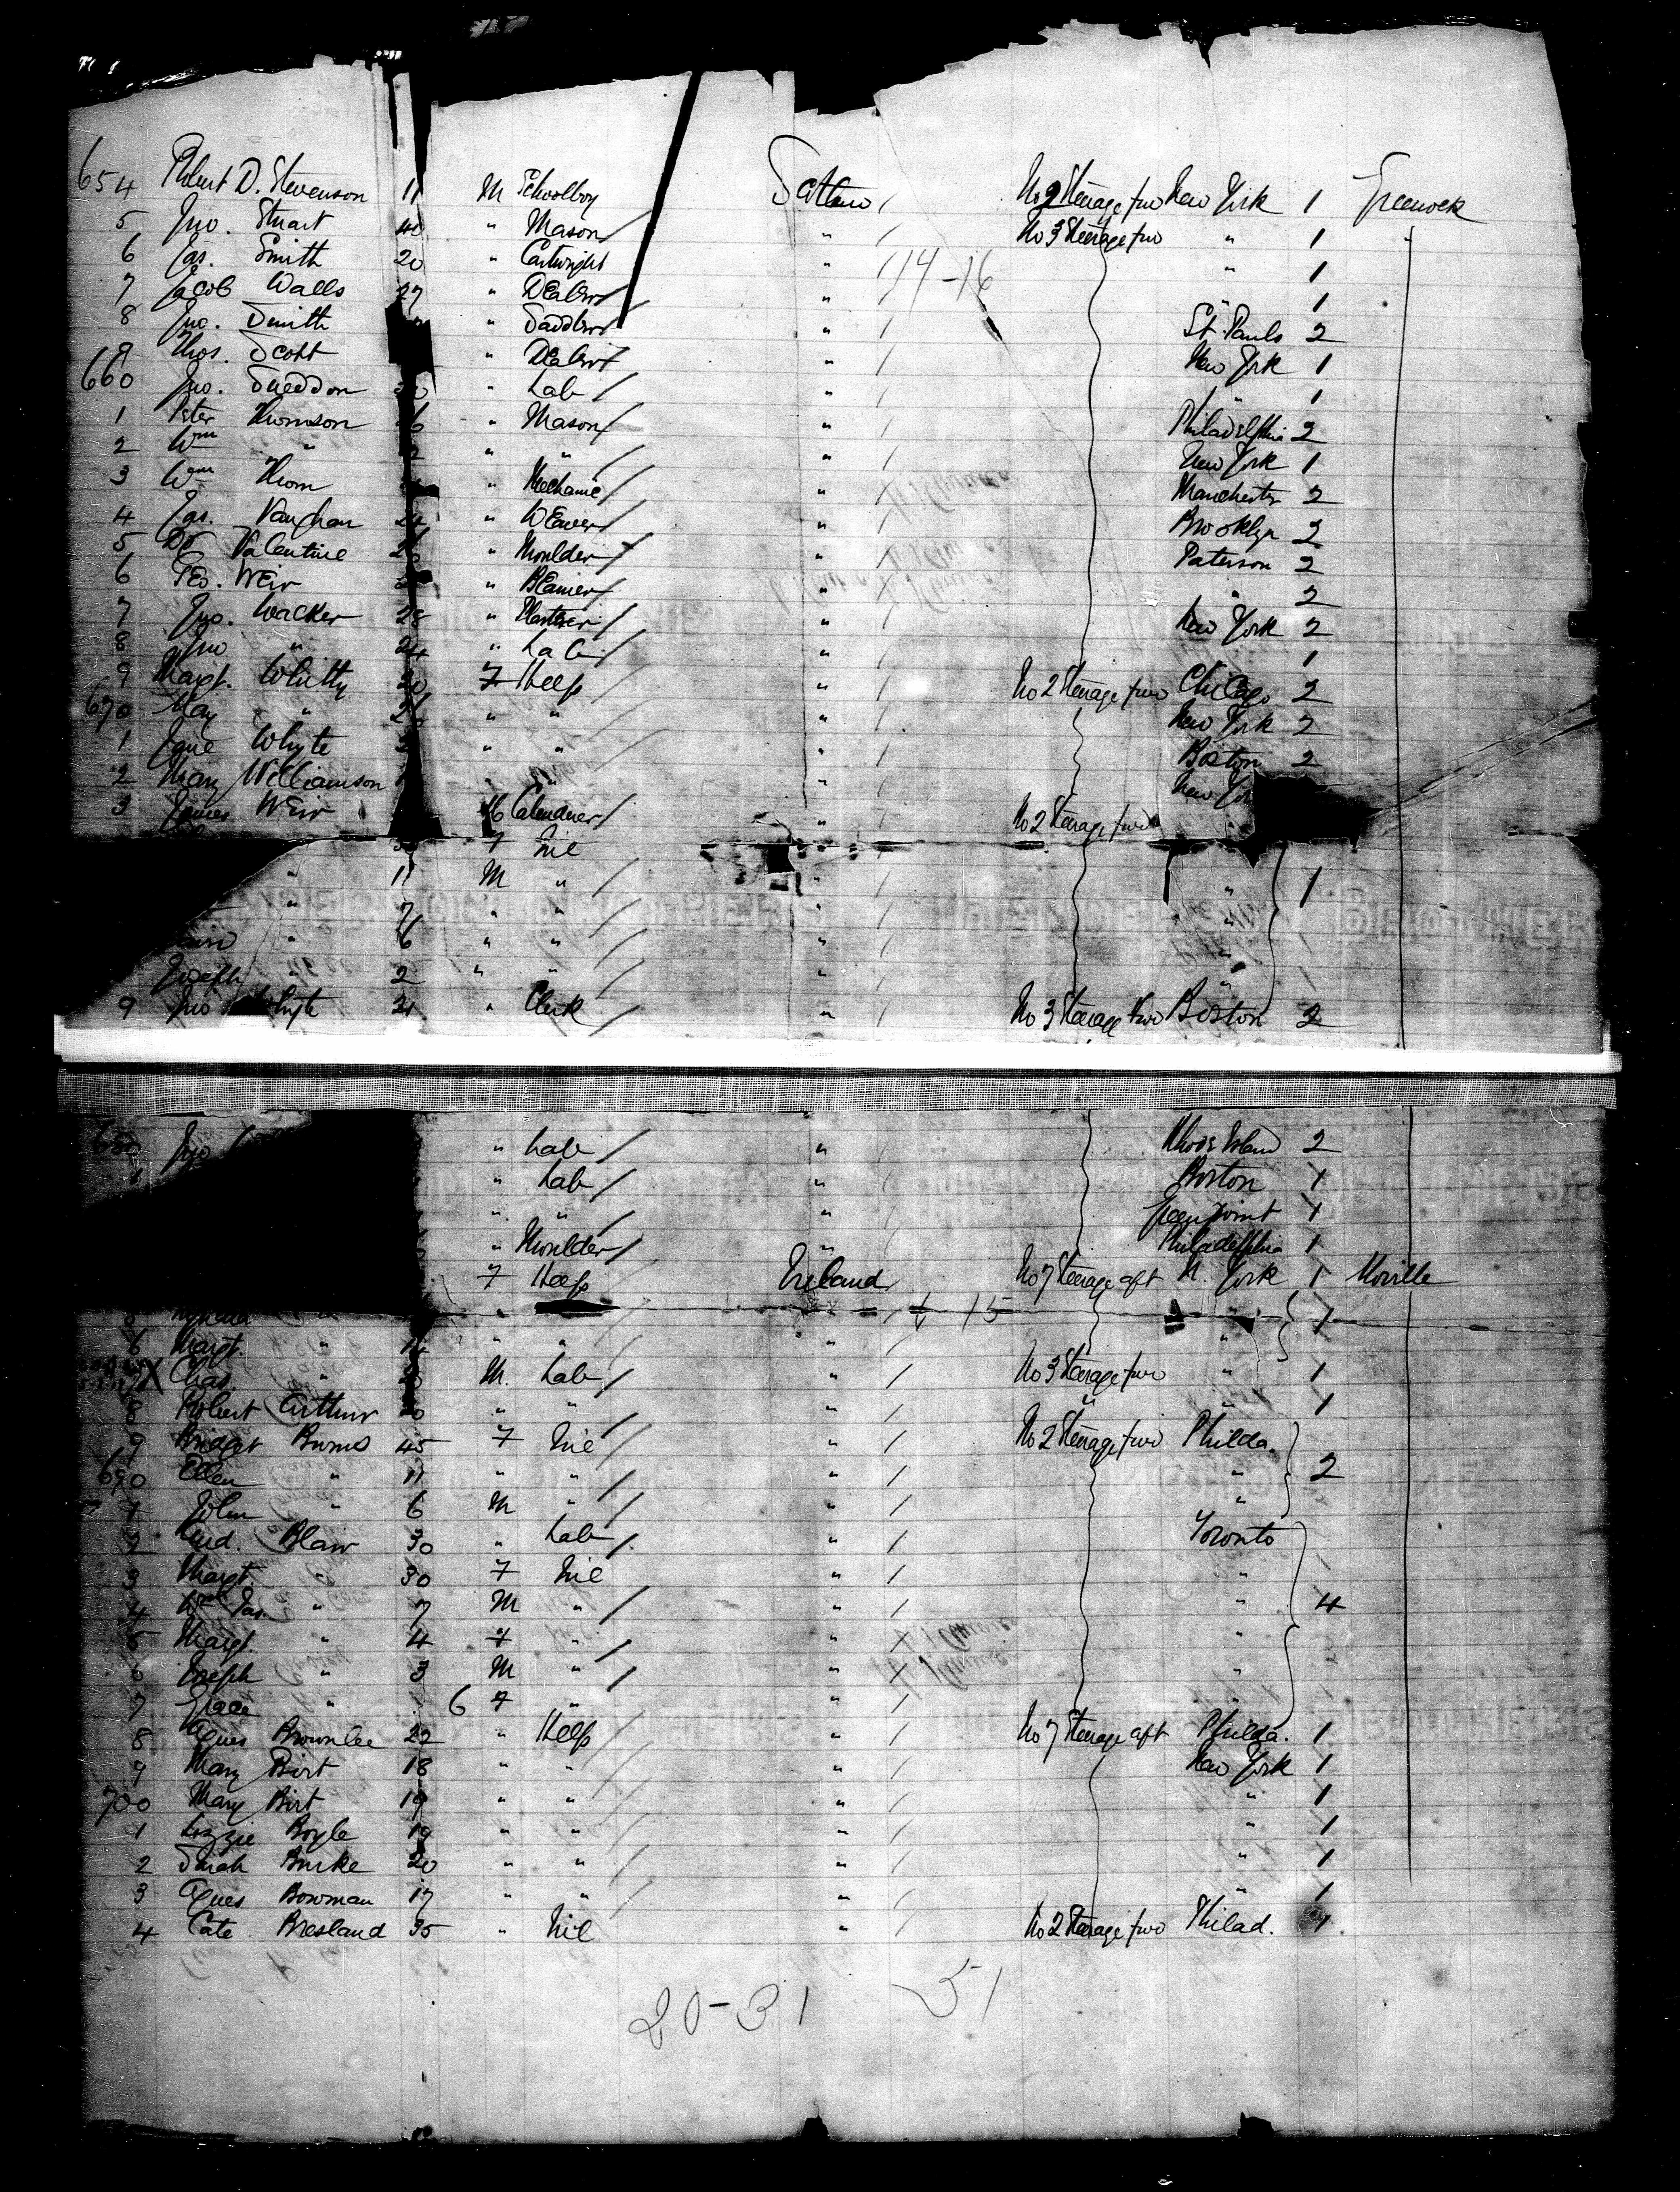 654 Robert D. Stevenson 11 M Schoolboy Scotland No 2 Steerage fwd New York 1 Greenock
5 Jno. Stuart 40 " Mason " No 3 Steerage fwd " 1
6 Jas. Smith 20 " Cartwright " 14-16 " 1
7 Jacob Walls 27 " Dealer " " 1
8 Jno. Smith " Saddler " St. Pauls 2
9 Thos. Scott " Dealer " New York 1
660 Jno. Sneddon " Lab " " 1
1 Peter Thomson 6 " Mason " Philadelphia 2
2 Wm " 2 " " " New York 1
3 Wm Thom " Mechanic " Manchester 2
4 Jas. Vaughan 24 " Weaver " Brooklyn 2
5 Do Valentine " Moulder " Paterson 2
6 Geo. Weir " Beamer " " 2
7 Jno. Walker 28 " Plasterer " New York 2
8 Jno " 24 " Lab " 1
9 Margt. Whitty 20 F Help " No 2 Steerage fwd Chicago 2
670 May " " " " New York 2
1 Jane Whyte " " " Boston 2
2 Mary Williamson " " " New Yor
3 James Weir M Calendrer " No 2 Steerage fwd
F Nil
" 11 M " " " 1
" 7 " " "
" 6 " " " "
Joseph " 2 " " " "
9 Jno Whyte " Clerk " No 3 Steerage fwd Boston 2
680 Jno " Lab " Rhode Island 2
" Lab " Boston 1
" " " Greenpoint 1
" Moulder " Philadelphia 1
F Help Ireland No 7 Steerage aft N. York 1 Moville
15 " 1
6 Margt. " " " " "
7 Chas. " M. Lab " No 3 Steerage fwd " 1
8 Robert Arthur 20 " " " " " 1
9 Bridget Burns 45 F Nil " No 2 Steerage fwd Philda.
690 Ellen " 11 " " " " 2
1 John " 6 M " " "
2 And. Blair 30 " Lab " Toronto
3 Margt. " 30 F Nil " "
4 Wm Jas. " 7 M " " " 4
5 Margt. " 4 F " " "
6 Joseph " 3 M " " "
7 Grace " 6 F " " "
8 Agnes Brownlee 22 " Help " No 7 Steerage aft Philda. 1
9 Mary Birt 18 " " " New York 1
700 Mary Birt 19 " " " " 1
1 Lizzie Boyle 19 " " " " 1
2 Sarah Burke 20 " " " " 1
3 Agnes Bowman 17 " " " " 1
4 Cate Bresland 35 " Nil " No 2 Steerage fwd Philad. 1
20-31 51